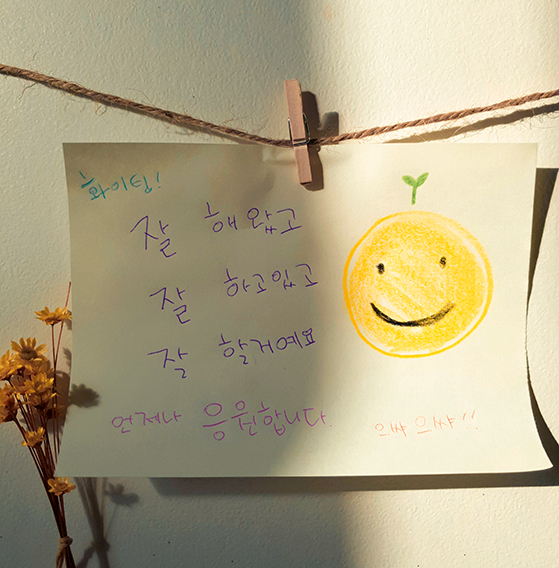 화이팅!
잘 해왔고
잘 하고있고
잘 할거예요
언제나 응원합니다.
으쌰 으쌰!!